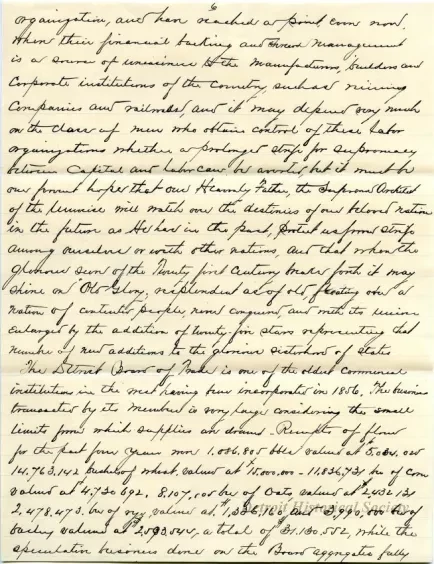 6
organization, and have reached a point even now.
When their financial backing and shrewd management
is a source of uneasiness to the manufacturers, builders and
Corporate institutions of the Country, such as mining
Companies and railroads, and it may depend very much
on the class of men who obtain control of these labor
organizations whether a prolonged strife for supremacy
between Capital and Labor can be averted, but it must be
our fervent hope that our Heavenly Father, the Supreme Architect
of the Universe will watch over the destinies of our beloved nation
in the future as He has in the past, protect us from strife
among ourselves or with other nations, and that when the
glorious sun of the Twenty first Century breaks forth it may
shine on "Old Glory, resplendent as of old, floating over a
Nation of contented people, never conquered and with its union
enlarged by the addition of twenty-five stars representing that
number of new additions to the glorious sisterhood of states
The Detroit Board of Trade is one of the oldest commercial
institutions in the west having been incorporated in 1856. The business
transacted by its members is very large considering the small
limits from which supplies are drawn. Receipts of flour
for the past four years were 1,036,805 bbls valued at $5,034,025
14,763,142 bushels of wheat, valued at $10,000,000 - 11,836,731 bu of corn
valued at $4,730,692. 8,107,000 bu of Oats, valued at $2,432,131
2,478,473 bu of rye, valued at $1,336,160 and 3,990,000 bu of
barley valued at $2,593,544, a total of $31,130,552, while the
speculative business done on the Board aggregates fully
Detroit Historical Society